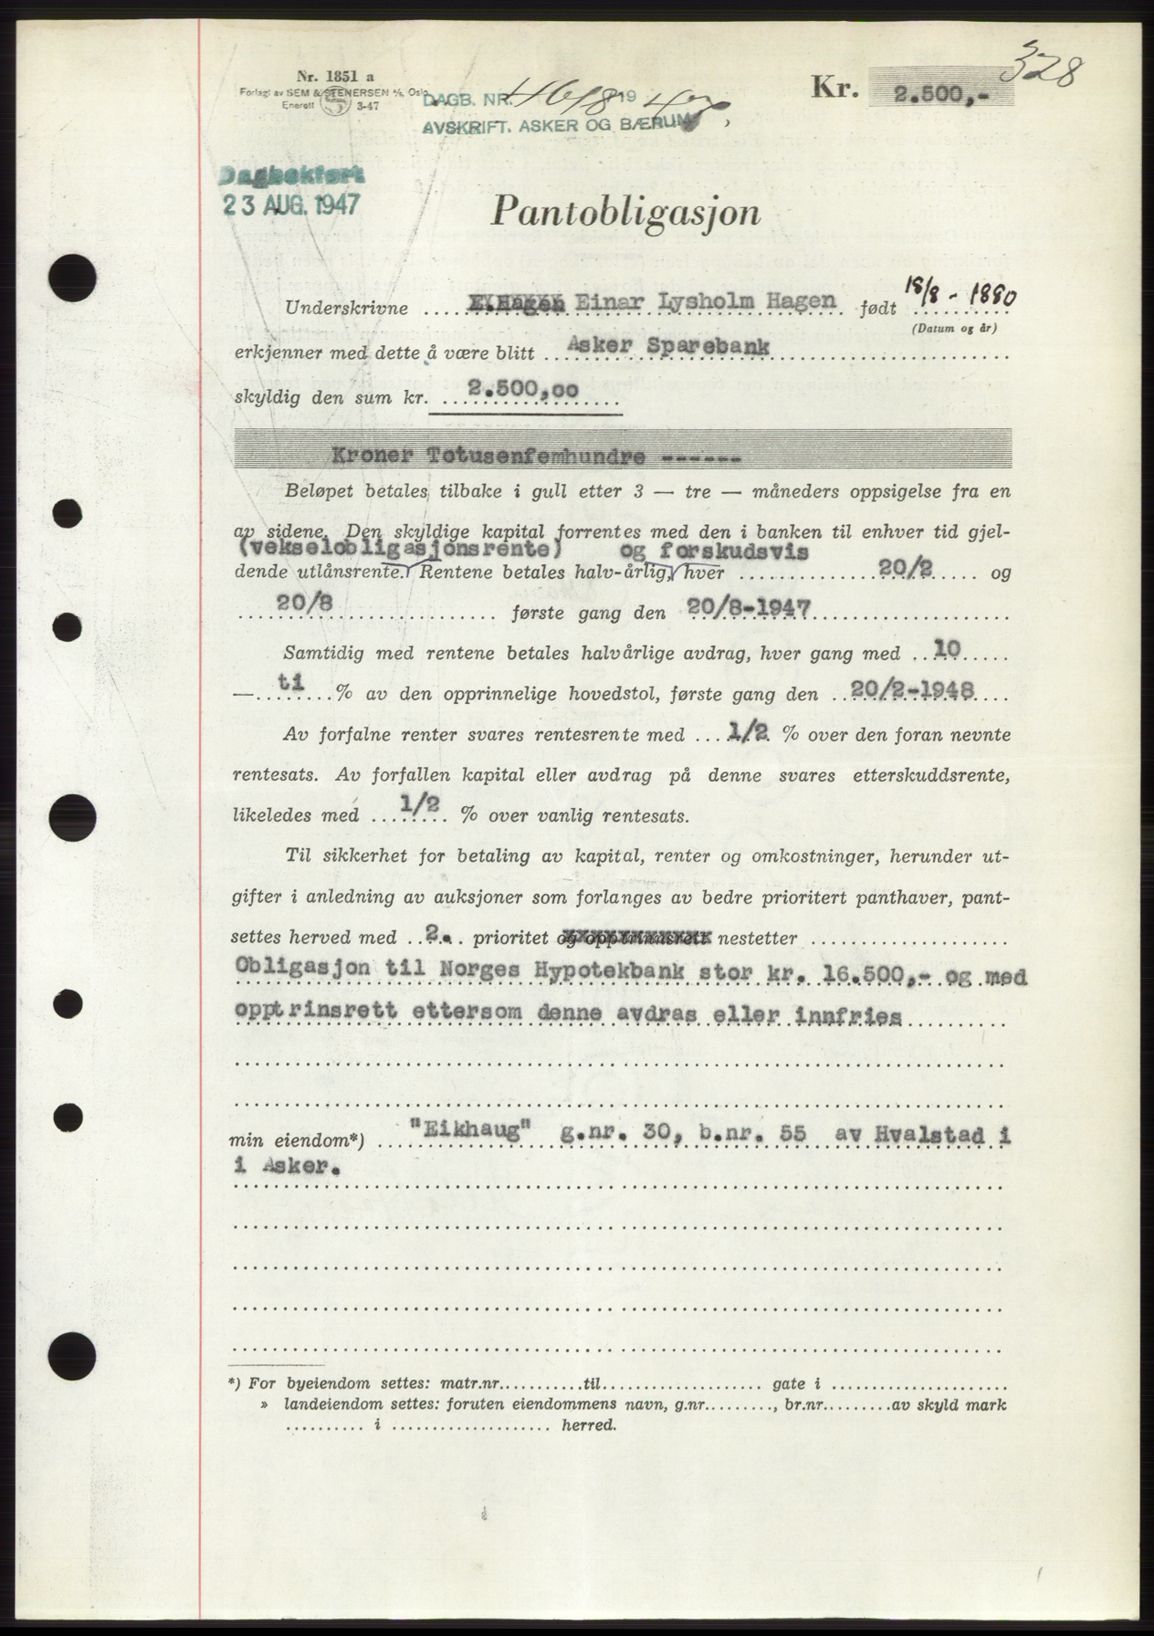 328
Nr. 1851 a
Forlagt av SEM & STENERSEN A/S, Oslo
Enerett 3-47
DAGB. NR. 4618 19 47
AVSKRIFT. ASKER OG BÆRUM
Kr. 2.500,-
Dagbokført
23 AUG. 1947
Pantobligasjon
Underskrivne E.Hagen Einar Lysholm Hagen født 18/8 - 1880
(Datum og år)
erkjenner med dette å være blitt Asker Sparebank
skyldig den sum kr. 2.500,00
Kroner Totusenfemhundre ------
Beløpet betales tilbake i gull etter 3 — tre — måneders oppsigelse fra en
av sidene. Den skyldige kapital forrentes med den i banken til enhver tid gjel-
(vekselobligasjonsrente) og forskudsvis
dende utlånsrente. Rentene betales halv-årlig, hver 20/2 og
20/8 første gang den 20/8-1947
Samtidig med rentene betales halvårlige avdrag, hver gang med 10
— ti % av den opprinnelige hovedstol, første gang den 20/2-1948
Av forfalne renter svares rentesrente med 1/2 % over den foran nevnte
rentesats. Av forfallen kapital eller avdrag på denne svares etterskuddsrente,
likeledes med 1/2 % over vanlig rentesats.
Til sikkerhet for betaling av kapital, renter og omkostninger, herunder ut-
gifter i anledning av auksjoner som forlanges av bedre prioritert panthaver, pant-
settes herved med 2. prioritet og opptrinnsrett nestetter
Obligasjon til Norges Hypotekbank stor kr. 16.500,- og med
opptrinsrett ettersom denne avdras eller innfries
min eiendom*) "Eikhaug" g.nr. 30, b.nr. 55 av Hvalstad i
i Asker.
*) For byeiendom settes: matr.nr. til gate i
» landeiendom settes: foruten eiendommens navn, g.nr. , br.nr. av skyld mark
i herred.